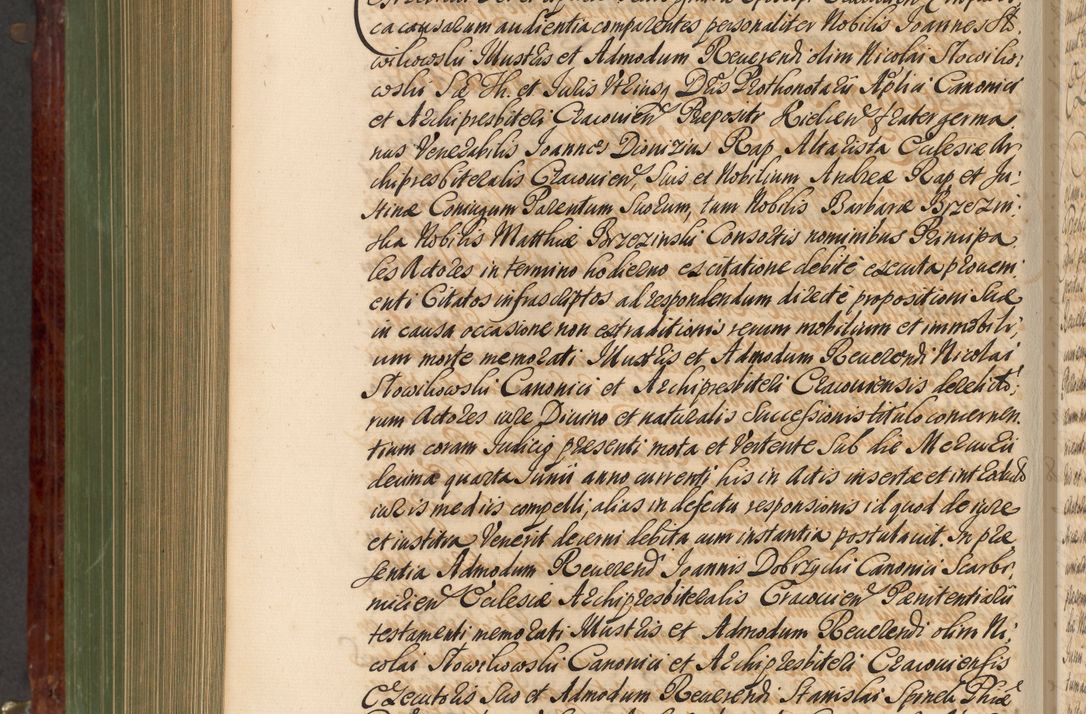 ca causarum audientia comparentes personaliter Nobilis Joannes Sło,
wikowski Illustris et Admodum Reverendi olim Nicolai Słowiko,
wski S. Th. et Juris Utriusq Dris Prothonotarii Aplici Canonici
et Archipresbiteri Cracovien Prepositi Kielcien frater germa
nus Venerabilis Joannes Dionizius Rap Altarista Ecclesiæ Ar
chipresbiteralis Cracovien, Suo et Nobilium Andreæ Rap et Ju:
stinæ Coniugum Parentum Suorum, tum Nobilis Barbaræ Brzezin:
ska Nobilis Matthiæ Brzezinski Consortis nominibus Principa
les Actores in termino hodierno ex citatione debitè executa proveni
enti Citatos infrascriptos ad respondendum directè propositioni Suæ
in causa occasione non extraditionis rerum mobilium et immobili,
um morte memorati Illustris et Admodum Reverendi Nicolai
Słowikowski Canonici et Archipresbiteri Cracoviensis derelicto:
rum Actores iure Divino et naturalis Successionis titulo concernen
tium coram Judicio præsenti mota et Vertente Sub die Mercurii
decima quarta Junii anno currenti his in Actis insertæ et
iuris mediis compelli, alias in defectu responsionis id quod de iure
et iustitia Venerit decerni debita cum instantia postulavit. In præ
sentia Admodum Reverendi Joannis Dobrzycki Canonici Scarbi,
mirien Ecclesiæ Archipresbiteralis Cracovien Pænitentiarii
testamenti memorati Illustris et Admodum Reverendi olim Ni,
colai Słowikowski Canonici et Archipresbiteri Cracoviensis
Executoris Suo et Admodum Reverendi Stanislai Spinek Phiæ